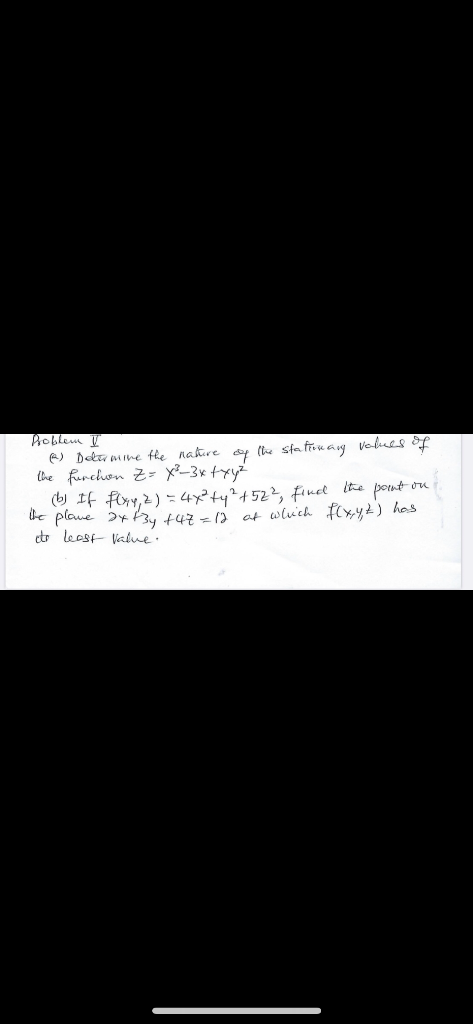 Problem V
(a) Determine the nature of the stationary values of
the function Z = x³-3x+xy²
(b) If f(x,y,z) = 4x²+y²+5z², find the point on
the plane 2x+3y+4z = 12 at which f(x,y,z) has
its least value.